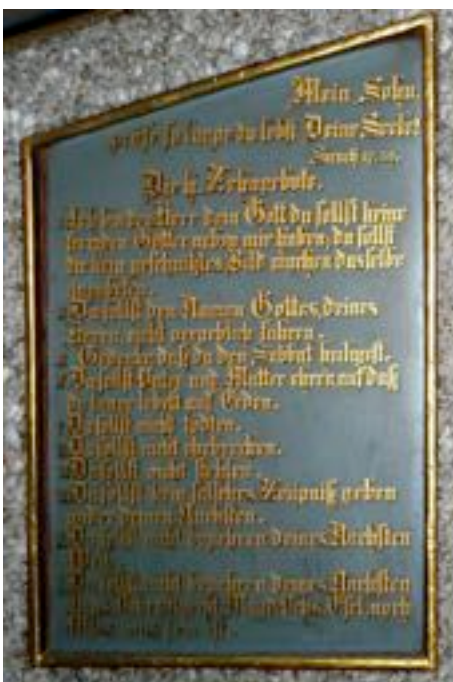 Mein Sohn,
prüfe so lange du lebst Deine Seele!
Sirach
Die h. Zehngebote.
Ich bin der Herr dein Gott du sollst keine
Götter neben mir haben, du sollst
dir kein geschnitztes Bild machen dasselbe
Du sollst den Namen Gottes, deines
Herrn nicht vergeblich führen.
daß du den Sabbat heiligest.
Du sollst Vater und Mutter ehren auf daß
du lange lebest auf Erden.
Du sollst nicht tödten.
Du sollst nicht ehebrechen.
Du sollst nicht stehlen.
Du sollst kein falsches Zeugniß geben
wider deinen Nächsten.
Du sollst nicht begehren deines Nächsten
Du sollst nicht begehren deines Nächsten
Esel, noch